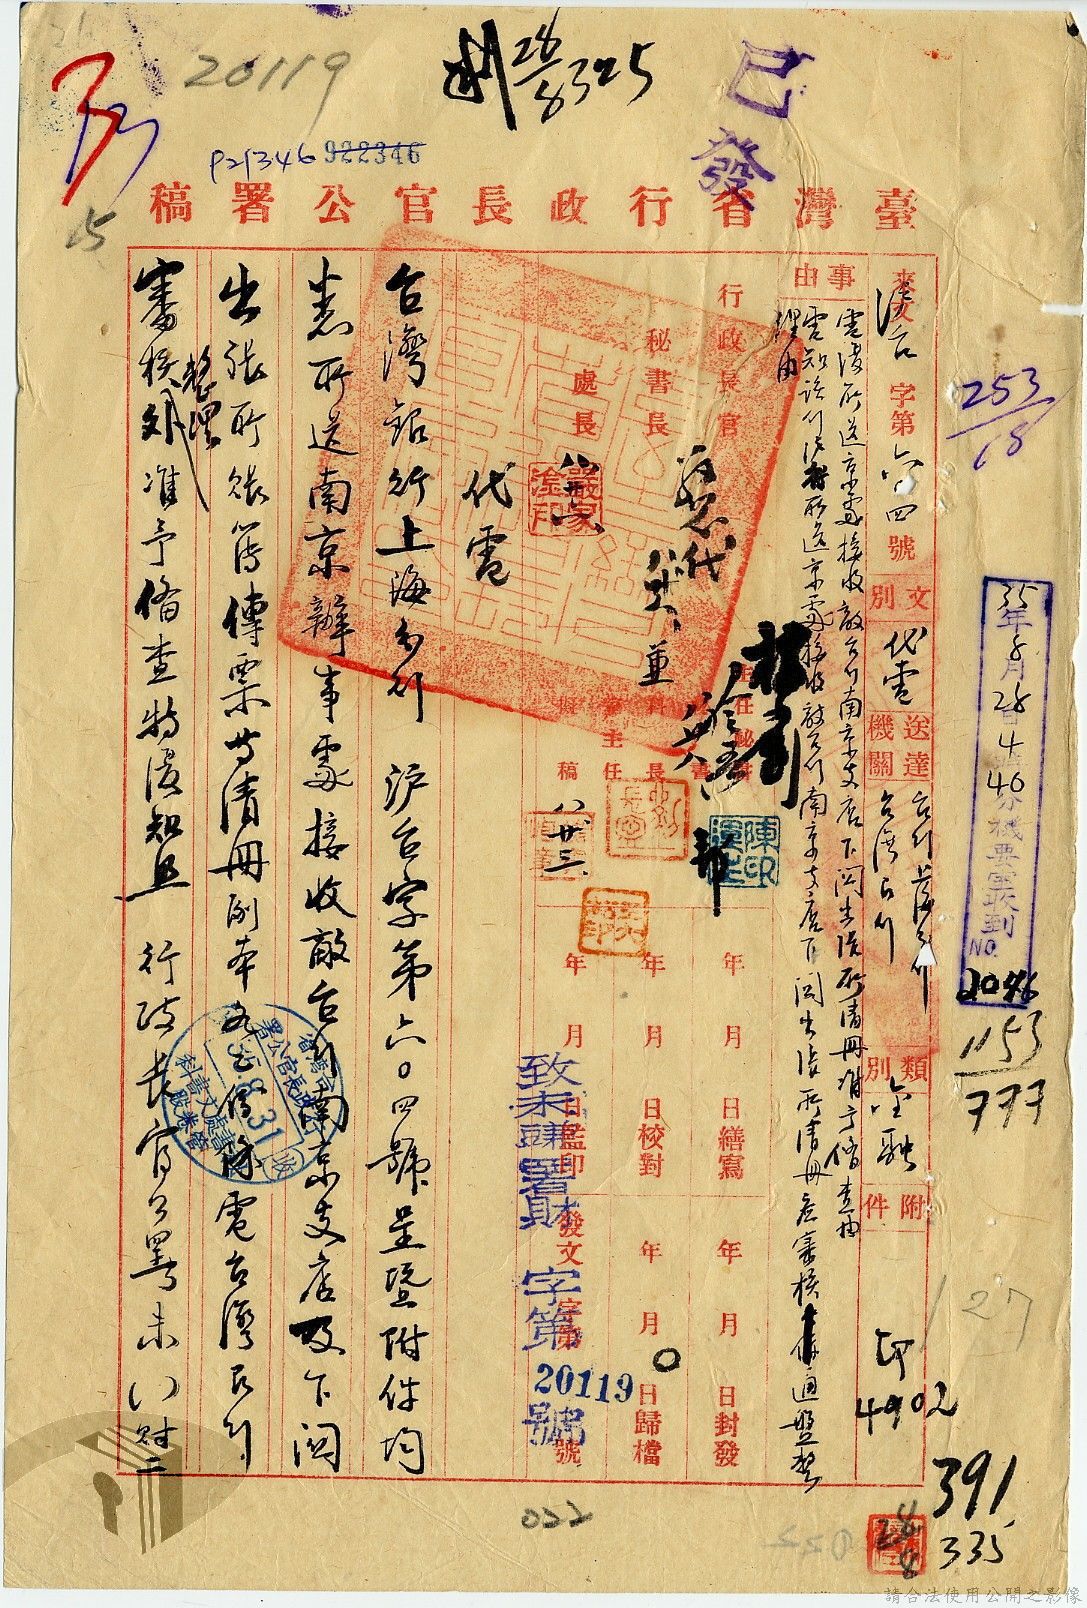 20119
28/8 325
已發
P21346 922346
15
臺灣省行政長官公署稿
來文 滬台字第六〇四號
文別 代電
送達機關 台行上海分行
台灣銀行
類別 金融
附件
事由
電復所送京處接收敵台行南京支店下關出張所清冊准予備查由
行政長官
秘書長
處長
主任秘書
科長
主任
擬稿
嚴家淦印
八廿六
八廿三
年月日繕寫
年月日校對
年月日監印
年月日封發
年月日歸檔
發文 字第 號
致未 署財 字第20119號
代電
台灣銀行上海分行 沪台字第六〇四號呈暨附件均
悉所送南京辦事處接收敵台行南京支店及下關
出張所賬簿傳票等清冊副本 除電台灣銀行
審核整理外准予備查特復知照 行政長官公署未 財二
35.8.31
253/18
35年8月28日
機要室收到
NO. 2046
1153
777
127
4902
391
335
28/8
022
請合法使用公開之影像